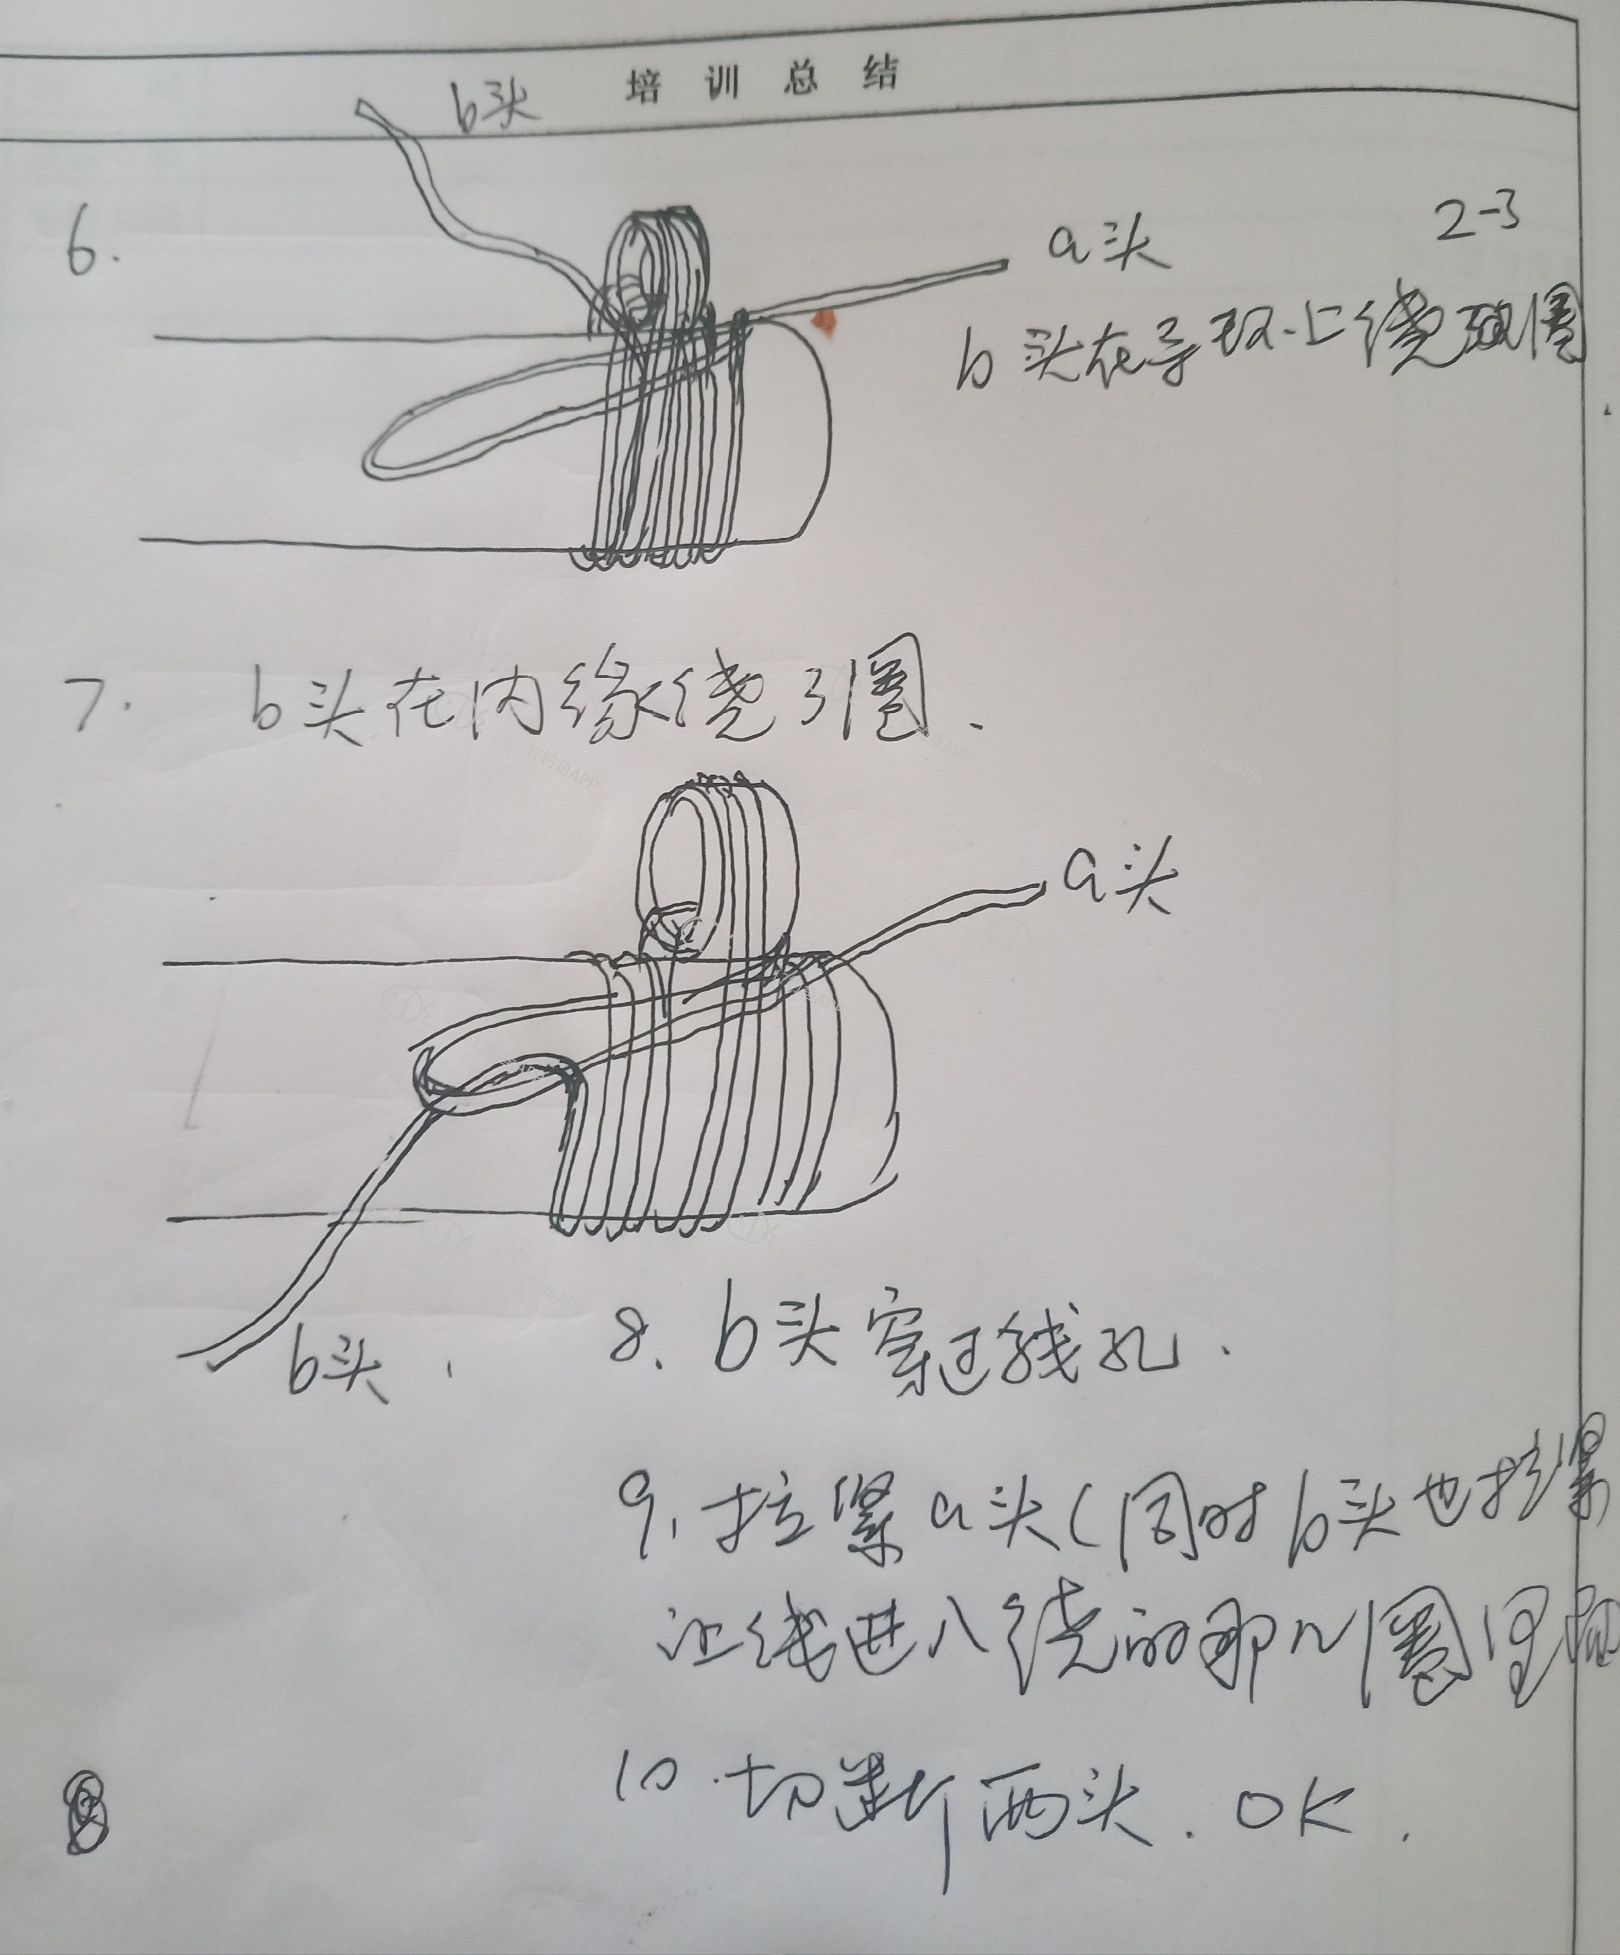 培训总结
b头
6.
a头
2-3
b头在导环上绕圈
7. b头在内缘绕3圈.
a头
b头.
8. b头穿过线孔.
9. 拉紧a头(同时b头也拉紧
让线进入绕的那几圈里面
10.切断两头.OK.